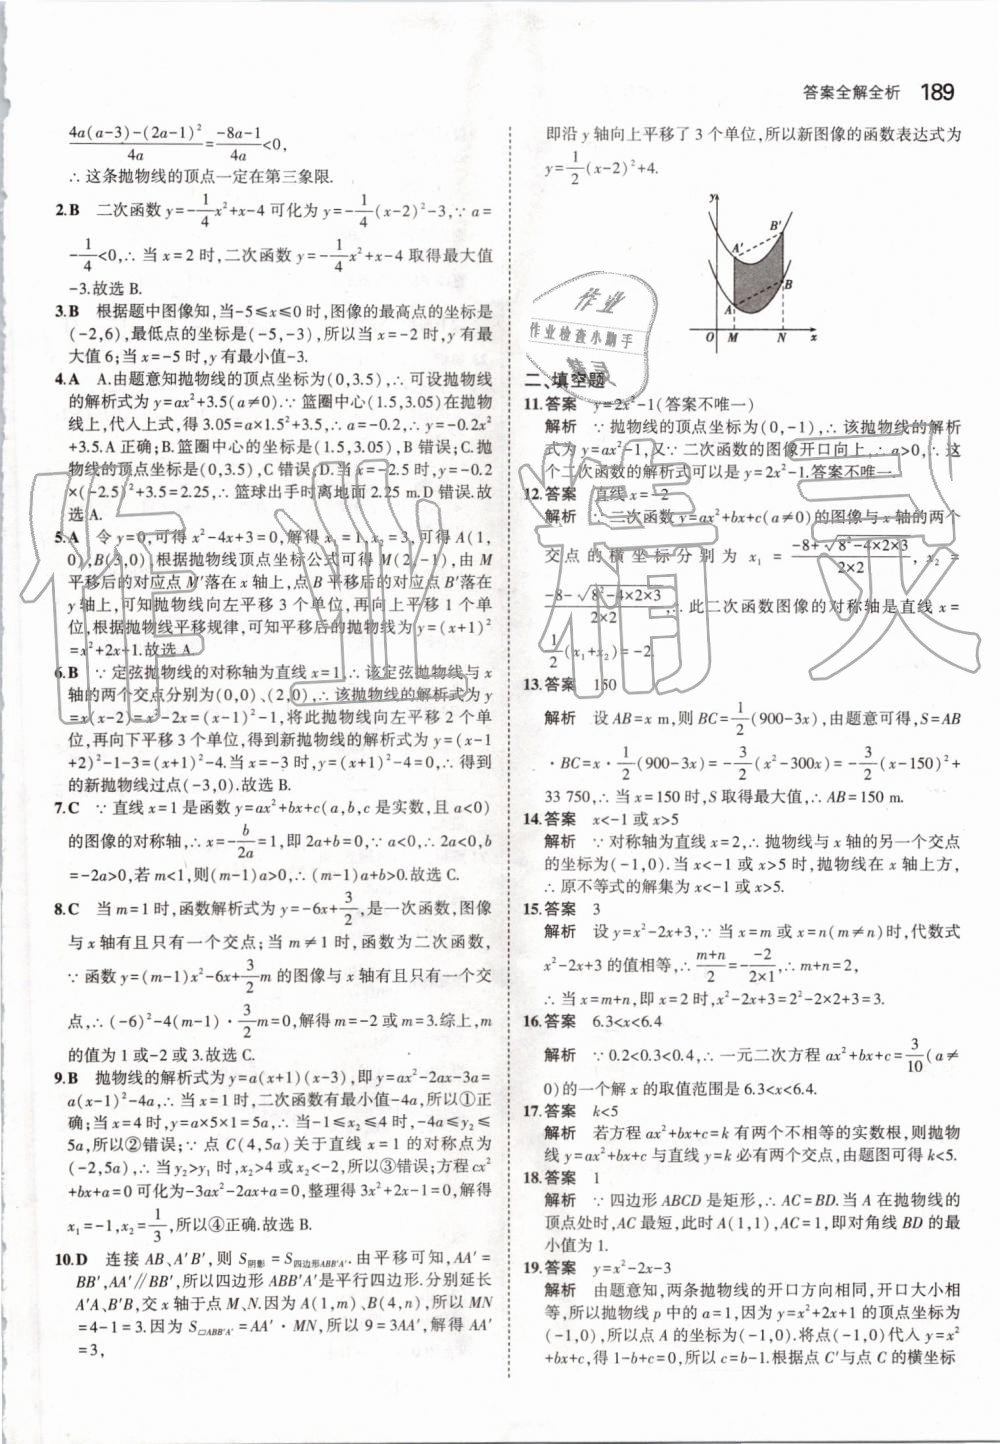 答案全解全析 189
4a(a-3)-(2a-1)²/4a=-8a-1/4a<0,
∴ 这条抛物线的顶点一定在第三象限.
2.B 二次函数 y=-1/4x²+x-4 可化为 y=-1/4(x-2)²-3,∵ a=
-1/4<0,∴ 当 x=2 时,二次函数 y=-1/4x²+x-4 取得最大值
-3.故选 B.
3.B 根据题中图像知,当-5≤x≤0 时,图像的最高点的坐标是
(-2,6),最低点的坐标是(-5,-3),所以当 x=-2 时,y 有最
大值 6;当 x=-5 时,y 有最小值-3.
4.A A.由题意知抛物线的顶点坐标为(0,3.5),∴ 可设抛物线
的解析式为 y=ax²+3.5(a≠0).∵ 篮圈中心(1.5,3.05)在抛物
线上,代入上式,得 3.05=a×1.5²+3.5,∴ a=-0.2,∴ y=-0.2x²
+3.5.A 正确;B.篮圈中心的坐标是(1.5,3.05),B 错误;C.抛
物线的顶点坐标是(0,3.5),C 错误;D.当 x=-2.5 时,y=-0.2
×(-2.5)²+3.5=2.25,∴ 篮球出手时离地面 2.25 m.D 错误.故
选 A.
5.A 令 y=0,可得 x²-4x+3=0,解得 x₁=1,x₂=3,可得 A(1,
0),B(3,0),根据抛物线顶点坐标公式可得 M(2,-1),由 M
平移后的对应点 M′落在 x 轴上,点 B 平移后的对应点 B′落在
y 轴上,可知抛物线向左平移 3 个单位,再向上平移 1 个单
位,根据抛物线平移规律,可知平移后的抛物线为 y=(x+1)²
=x²+2x+1.故选 A.
6.B ∵ 定弦抛物线的对称轴为直线 x=1,∴ 该定弦抛物线与 x
轴的两个交点分别为(0,0)、(2,0),∴ 该抛物线的解析式为 y
=x(x-2)=x²-2x=(x-1)²-1,将此抛物线向左平移 2 个单
位,再向下平移 3 个单位,得到新抛物线的解析式为 y=(x-1
+2)²-1-3=(x+1)²-4.当 x=-3 时,y=(x+1)²-4=0,∴ 得到
的新抛物线过点(-3,0).故选 B.
7.C ∵ 直线 x=1 是函数 y=ax²+bx+c(a,b,c 是实数,且 a<0)
的图像的对称轴,∴ x=-b/2a=1,即 2a+b=0,∵ a<0,∴ 2a<0,b
=-2a>0,若 m<1,则(m-1)a>0,∴ (m-1)a+b>0.故选 C.
8.C 当 m=1 时,函数解析式为 y=-6x+3/2,是一次函数,图像
与 x 轴有且只有一个交点;当 m≠1 时,函数为二次函数,
∵ 函数 y=(m-1)x²-6x+3/2m 的图像与 x 轴有且只有一个交
点,∴ (-6)²-4(m-1)·3/2m=0,解得 m=-2 或 m=3.综上,m
的值为 1 或-2 或 3.故选 C.
9.B 抛物线的解析式为 y=a(x+1)(x-3),即 y=ax²-2ax-3a=
a(x-1)²-4a,∴ 当 x=1 时,二次函数有最小值-4a,所以①正
确;当 x=4 时,y=a×5×1=5a,∴ 当-1≤x₂≤4 时,-4a≤y₂≤
5a,所以②错误;∵ 点 C(4,5a)关于直线 x=1 的对称点为
(-2,5a),∴ 当 y₂>y₁ 时,x₂>4 或 x₂<-2,所以③错误;方程 cx²
+bx+a=0 可化为-3ax²-2ax+a=0,整理得 3x²+2x-1=0,解得
x₁=-1,x₂=1/3,所以④正确.故选 B.
10.D 连接 AB、A′B′,则 S阴影=S四边形ABB′A′.由平移可知,AA′=
BB′,AA′∥BB′,所以四边形 ABB′A′是平行四边形.分别延长
A′A、B′B,交 x 轴于点 M、N.因为 A(1,m)、B(4,n),所以 MN
=4-1=3.因为 S▱ABB′A′=AA′·MN,所以 9=3AA′,解得 AA′
=3,
即沿 y 轴向上平移了 3 个单位,所以新图像的函数表达式为
y=1/2(x-2)²+4.
y
B′
A′
B
A
O M N x
二、填空题
11.答案 y=2x²-1(答案不唯一)
解析 ∵ 抛物线的顶点坐标为(0,-1),∴ 该抛物线的解析
式为 y=ax²-1,又∵ 二次函数的图像开口向上,∴ a>0,∴ 这
个二次函数的解析式可以是 y=2x²-1.答案不唯一.
12.答案 直线 x=-2
解析 ∵ 二次函数 y=ax²+bx+c(a≠0)的图像与 x 轴的两个
交点的横坐标分别为 x₁=-8+√8²-4×2×3/2×2,x₂=
-8-√8²-4×2×3/2×2,∴ 此二次函数图像的对称轴是直线 x=
1/2(x₁+x₂)=-2.
13.答案 150
解析 设 AB=x m,则 BC=1/2(900-3x),由题意可得,S=AB
·BC=x·1/2(900-3x)=-3/2(x²-300x)=-3/2(x-150)²+
33 750,∴ 当 x=150 时,S 取得最大值,∴ AB=150 m.
14.答案 x<-1 或 x>5
解析 ∵ 对称轴为直线 x=2,∴ 抛物线与 x 轴的另一个交点
的坐标为(-1,0).当 x<-1 或 x>5 时,抛物线在 x 轴上方,
∴ 原不等式的解集为 x<-1 或 x>5.
15.答案 3
解析 设 y=x²-2x+3,∵ 当 x=m 或 x=n(m≠n)时,代数式
x²-2x+3 的值相等,∴ m+n/2=--2/2×1,∴ m+n=2,
∴ 当 x=m+n,即 x=2 时,x²-2x+3=2²-2×2+3=3.
16.答案 6.3<x<6.4
解析 ∵ 0.2<0.3<0.4,∴ 一元二次方程 ax²+bx+c=3/10(a≠
0)的一个解 x 的取值范围是 6.3<x<6.4.
17.答案 k<5
解析 若方程 ax²+bx+c=k 有两个不相等的实数根,则抛物
线 y=ax²+bx+c 与直线 y=k 必有两个交点,由题图可得 k<5.
18.答案 1
解析 ∵ 四边形 ABCD 是矩形,∴ AC=BD.当 A 在抛物线的
顶点处时,AC 最短,此时 A(1,1),AC=1,即对角线 BD 的最
小值为 1.
19.答案 y=x²-2x-3
解析 由题意知,两条抛物线的开口方向相同,开口大小相
等,所以抛物线 p 中的 a=1,因为 y=x²+2x+1 的顶点坐标为
(-1,0),所以点 A 的坐标为(-1,0).将点(-1,0)代入 y=x²
+bx+c,得 1-b+c=0,所以 c=b-1.根据点 C′与点 C 的横坐标
作业
作业检查小助手
作业精灵